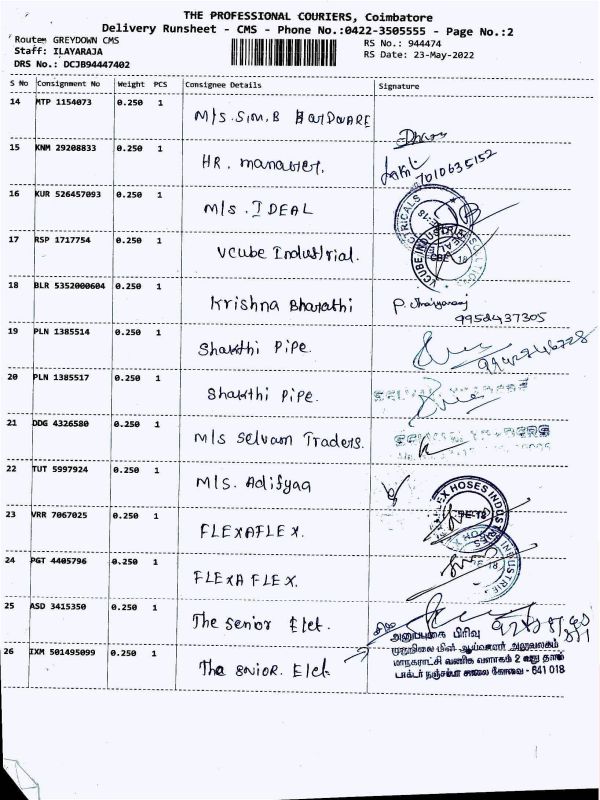 THE PROFESSIONAL COURIERS, Coimbatore
Delivery Runsheet - CMS - Phone No.:0422-3505555 - Page No.:2
Route: GREYDOWN CMS
RS No.: 944474
Staff: ILAYARAJA
RS Date: 23-May-2022
DRS No.: DCJB94447402
S No Consignment No Weight PCS Consignee Details Signature
14 MTP 1154073 0.250 1 M/S. Sim. B HardwARE
15 KNM 29208833 0.250 1 HR. manager. 7010635152
16 KUR 526457093 0.250 1 M/S. IDEAL
17 RSP 1717754 0.250 1 Vcube Industrial.
VCUBE INDUSTRIAL
18 BLR 5352000604 0.250 1 Krishna Bharathi
9952437305
19 PLN 1385514 0.250 1 Shakthi Pipe. 9942746728
20 PLN 1385517 0.250 1 Shakthi Pipe.
21 DDG 4326580 0.250 1 M/s Selvam Traders.
22 TUT 5997924 0.250 1 M/S. Adifyaa
23 VRR 7067025 0.250 1 FLEXAFLEX.
HOSES INDUSTRI
24 PGT 4405796 0.250 1 FLEXA FLEX.
25 ASD 3415350 0.250 1 The senior Elet.
அனுப்புகை பிரிவு
முதுநிலை மின் ஆய்வாளர் அலுவலகம்
26 IXM 501495099 0.250 1 The snior. Elet.
மாநகராட்சி வணிக வளாகம் 2 வது தளம்
டாக்டர் நஞ்சப்பா சாலை கோவை - 641 018